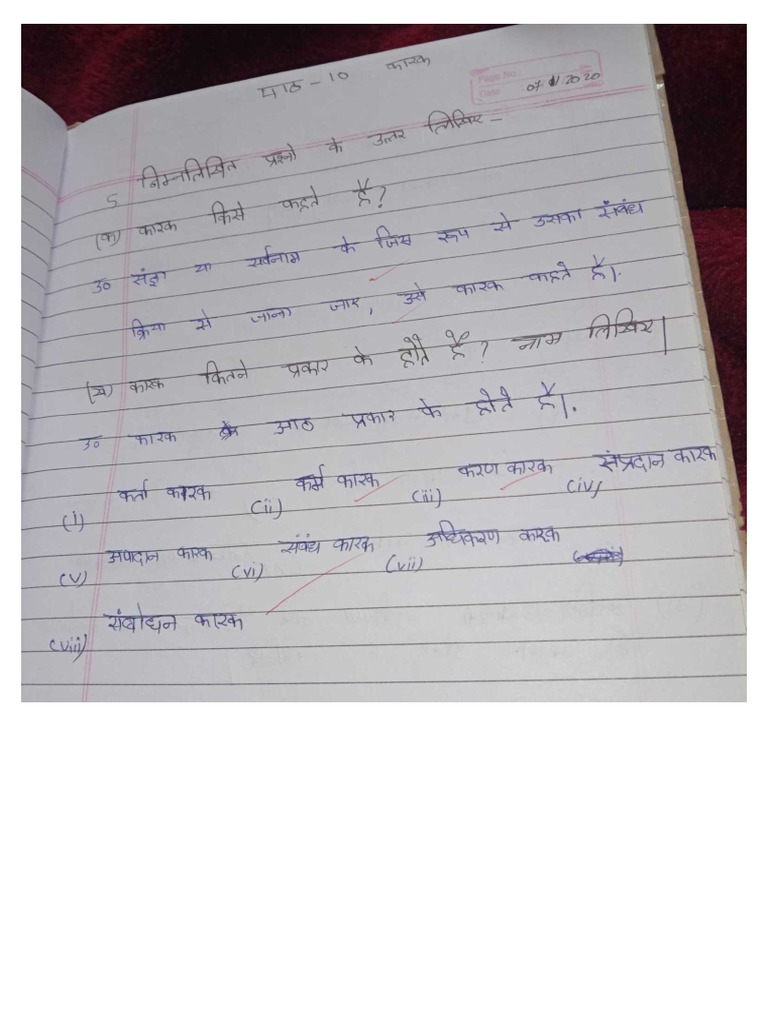 पाठ - 10 कारक
Page No.:
Date 07/11/2020
5 निम्नलिखित प्रश्नो के उत्तर लिखिए -
(क) कारक किसे कहते हैं?
उ० संज्ञा या सर्वनाम के जिस रूप से उसका संबंध
क्रिया से जाना जाए, उसे कारक कहते हैं।
(ख) कारक कितने प्रकार के होते हैं? नाम लिखिए।
उ० कारक आठ प्रकार के होते हैं।
(i) कर्ता कारक (ii) कर्म कारक (iii) करण कारक (iv) संप्रदान कारक
(v) अपादान कारक (vi) संबंध कारक (vii) अधिकरण कारक
(viii) संबोधन कारक